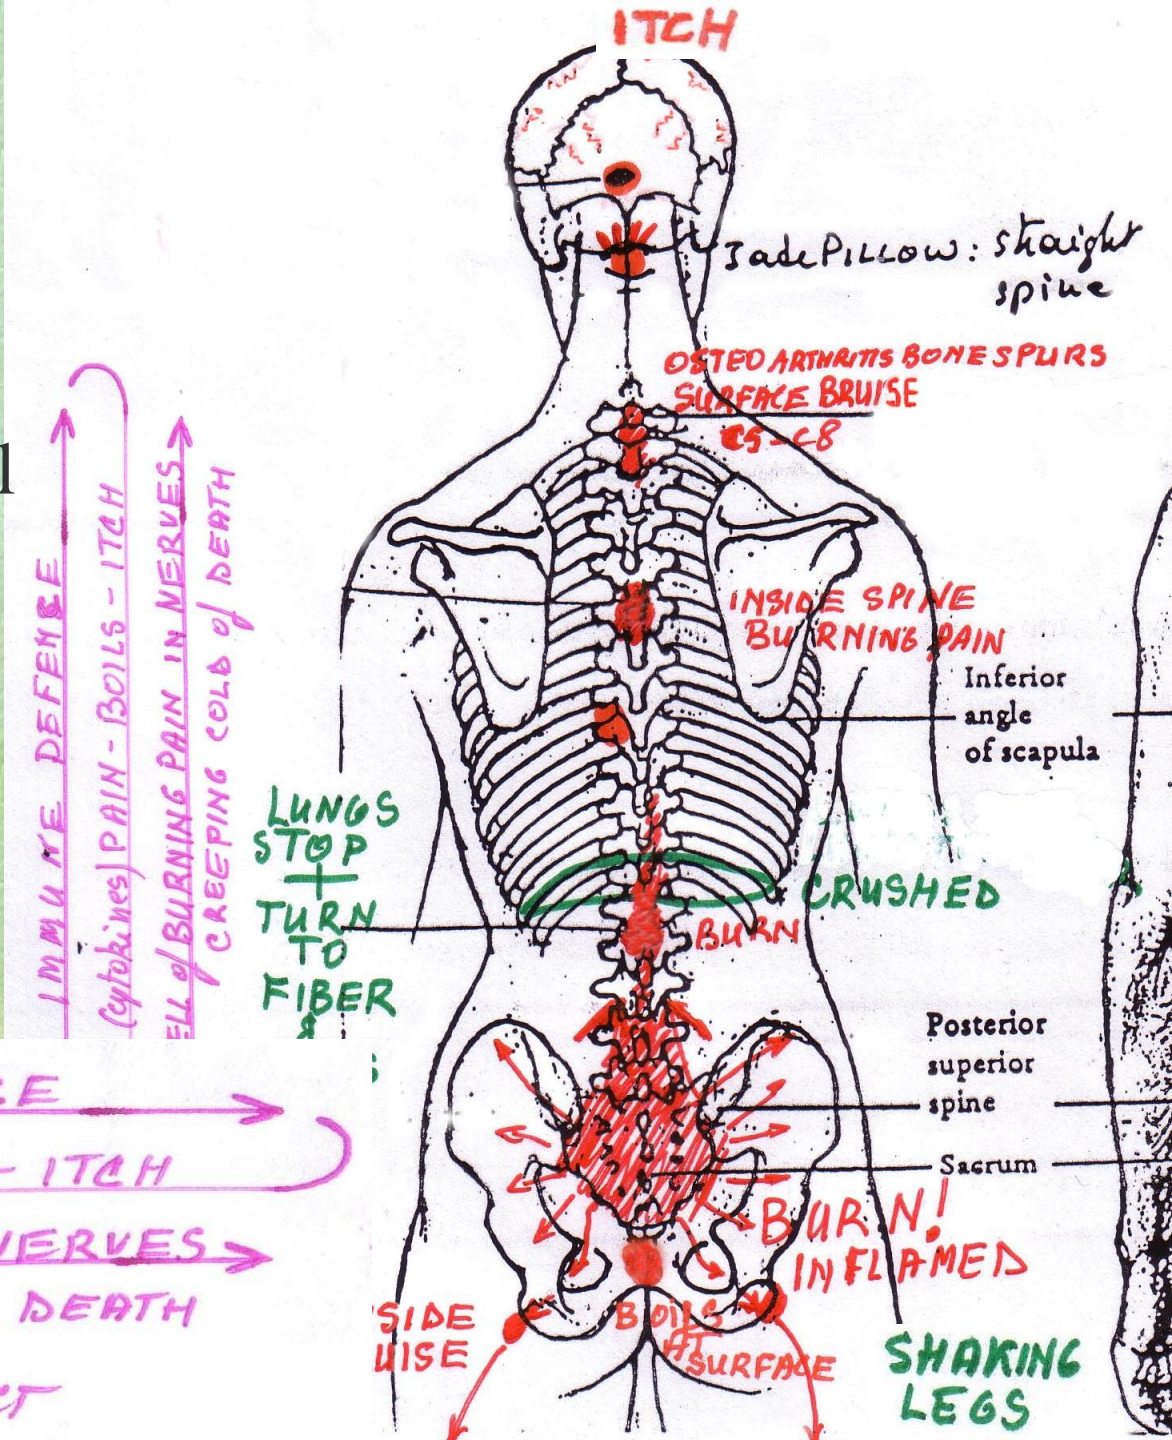 ITCH
JadePILLOW: straight
spine
OSTEOARTHRITIS BONE SPURS
SURFACE BRUISE
C5-C8
INSIDE SPINE
BURNING PAIN
Inferior
angle
of scapula
IMMUNE DEFENSE
(cytokines) PAIN - BOILS - ITCH
ELL of BURNING PAIN IN NERVES
CREEPING COLD of DEATH
LUNGS
STOP
TURN
TO
FIBER
&
S
CRUSHED
BURN
Posterior
superior
spine
Sacrum
BURN!
INFLAMED
- ITCH
NERVES
DEATH
SIDE
UISE
BOILS
AT
SURFACE
SHAKING
LEGS